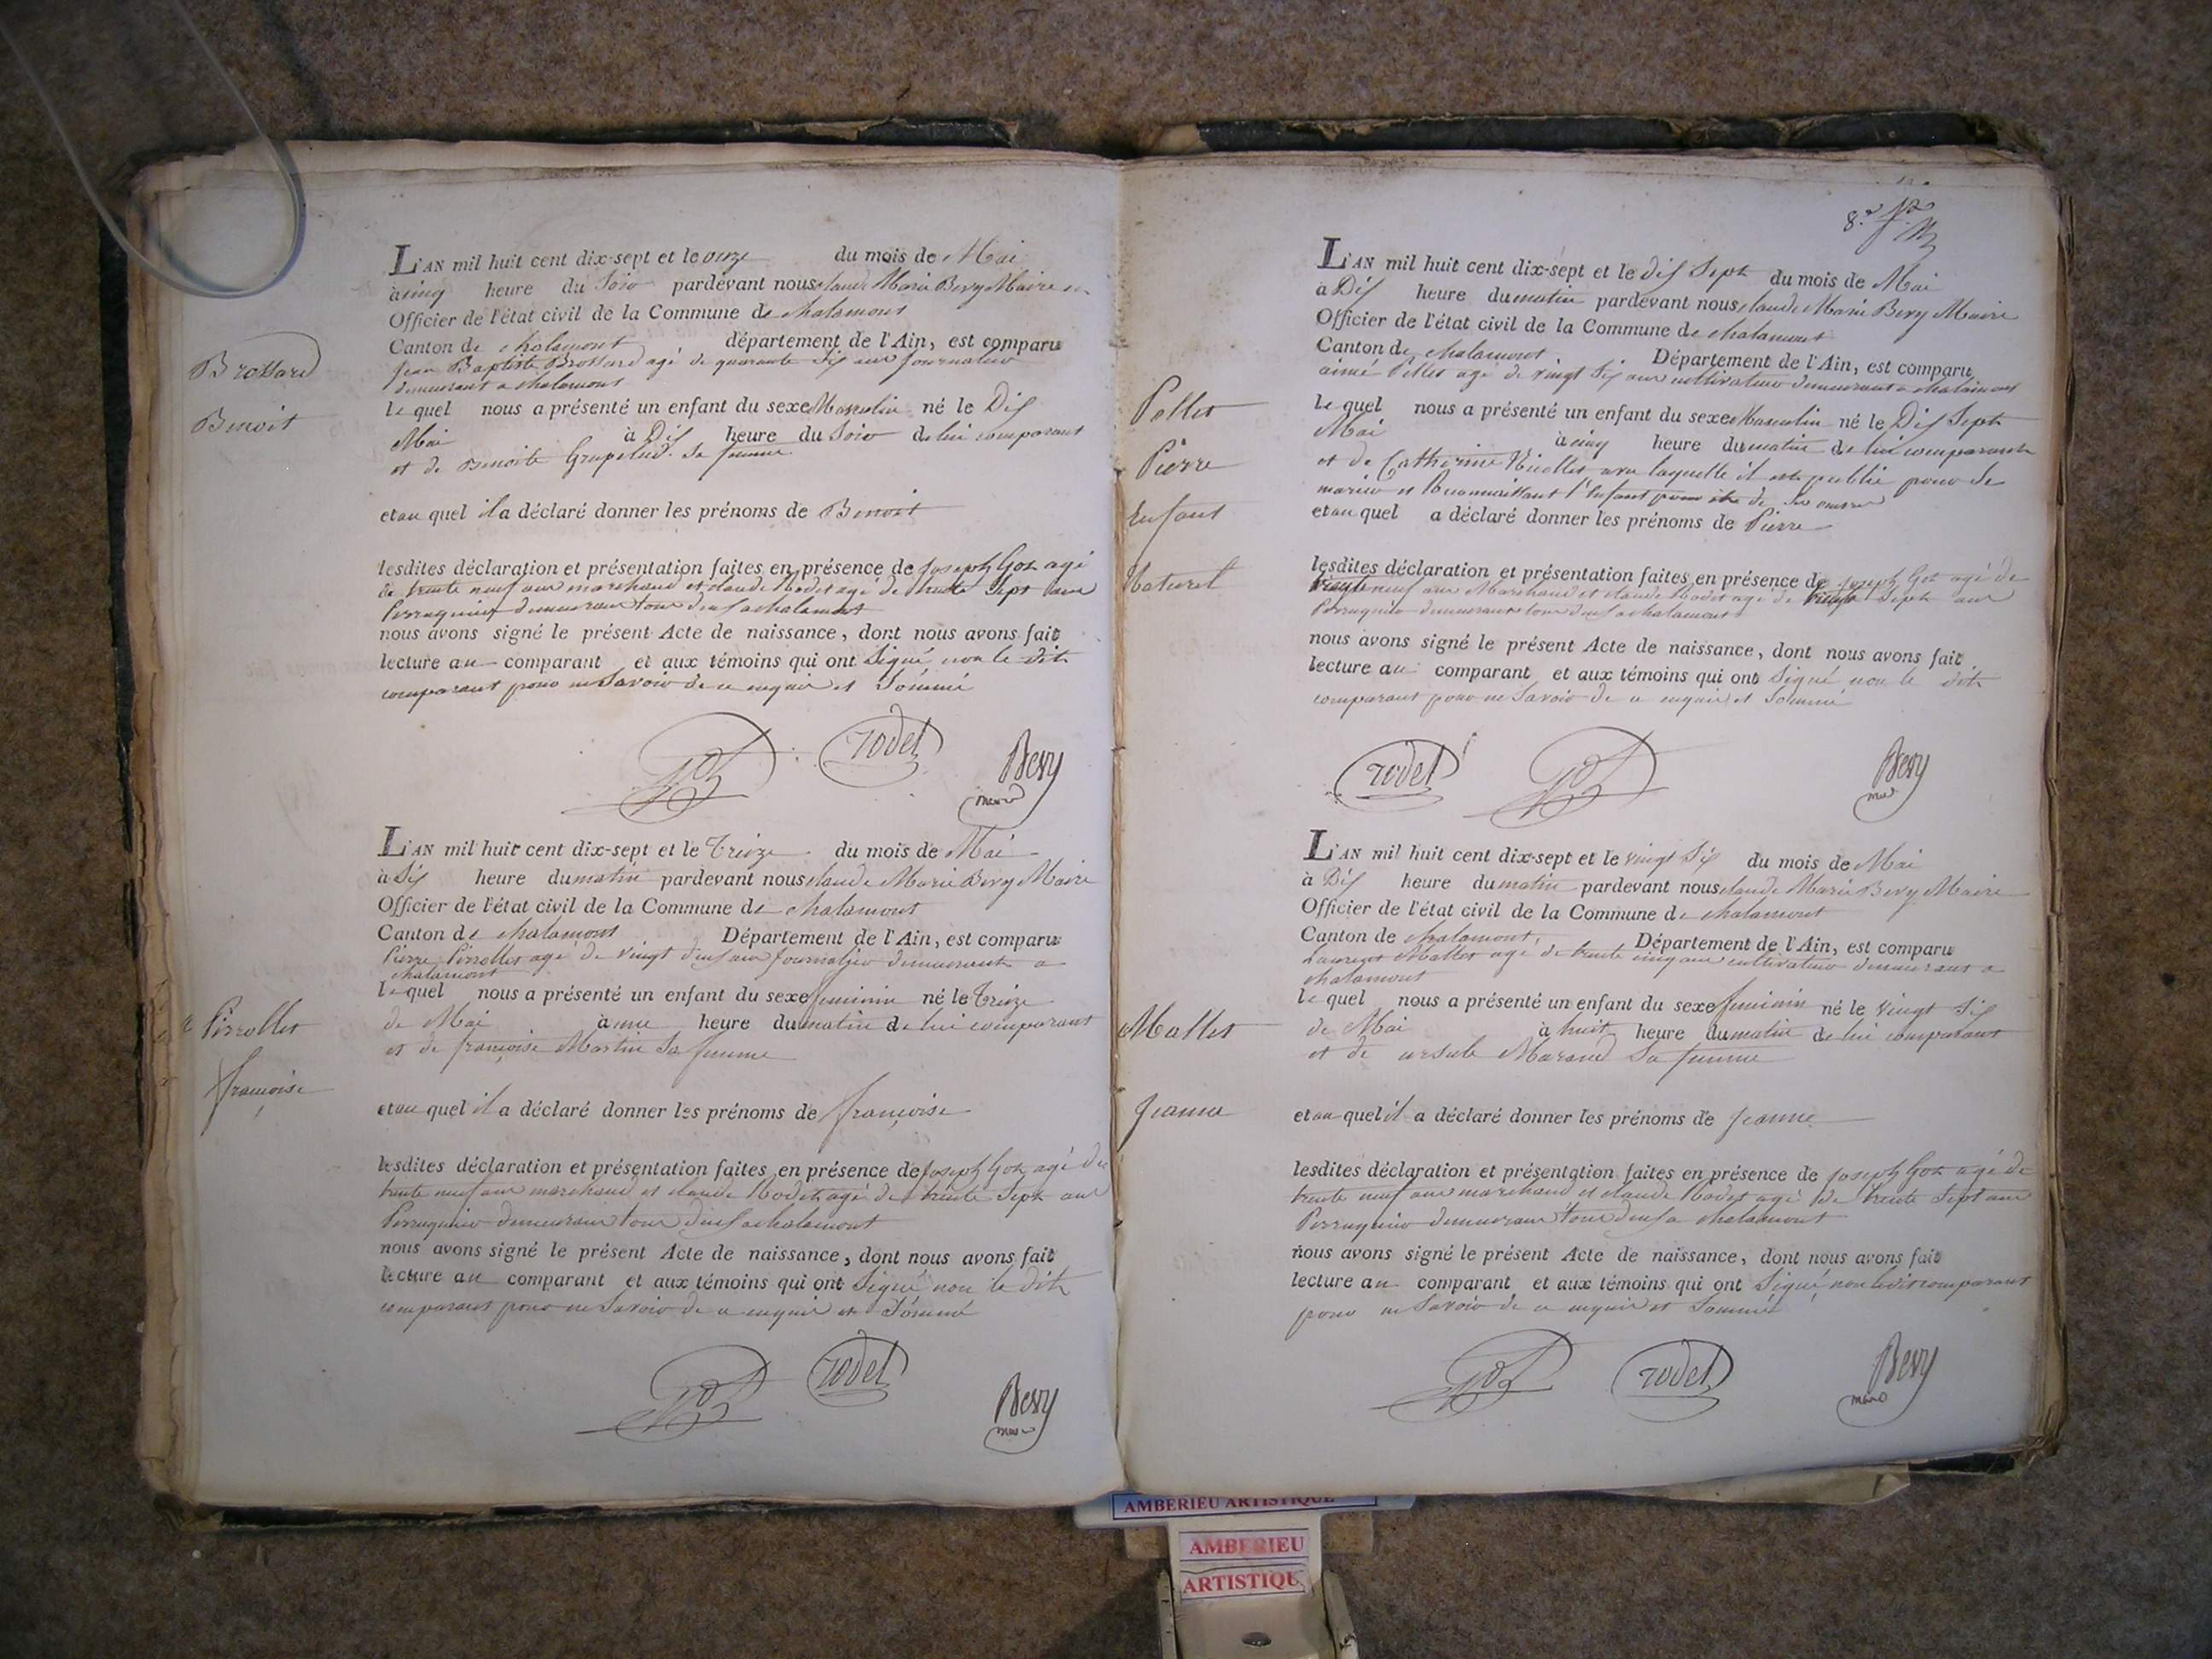 L'AN mil huit cent dix-sept et le onze du mois de Mai
à cinq heure du Soir pardevant nous Claude Marie Bevy Maire
Officier de l'état civil de la Commune de chalamont
Canton de chalamont département de l'Ain, est comparu
jean Baptiste Brossard agé de quarante Six ans journalier
demeurant a chalamont
Brossard
Benoit
le quel nous a présenté un enfant du sexe Masculin né le Dix
Mai à Dix heure du Soir de lui comparant
et de Benoite sa femme
et au quel il a déclaré donner les prénoms de Benoit
lesdites déclaration et présentation faites en présence de joseph Goz agé
de trente neuf ans marchand et claude Rodet agé de trente Sept ans
Perruquier demeurant tous deux a chalamont
nous avons signé le présent Acte de naissance, dont nous avons fait
lecture au comparant et aux témoins qui ont Signé non le dit
comparant pour ne Savoir de ce enquis et Sommé
Goz rodet Bevy
maire
L'AN mil huit cent dix-sept et le Treize du mois de Mai
à Six heure du matin pardevant nous claude Marie Bevy Maire
Officier de l'état civil de la Commune de chalamont
Canton de chalamont Département de l'Ain, est comparu
Pierre Pirrollet agé de vingt deux ans journalier demeurant a
chalamont
Pirrollet
françoise
le quel nous a présenté un enfant du sexe feminin né le Treize
de Mai à une heure du matin de lui comparant
et de françoise Martin Sa femme
et au quel il a déclaré donner les prénoms de françoise
lesdites déclaration et présentation faites en présence de joseph Goz agé de
trente neuf ans marchand et claude Rodet agé de trente Sept ans
Perruquier demeurant tous deux a chalamont
nous avons signé le présent Acte de naissance, dont nous avons fait
lecture au comparant et aux témoins qui ont Signé non le dit
comparant pour ne Savoir de ce enquis et Sommé
Goz rodet Bevy
maire
8.e
L'AN mil huit cent dix-sept et le dix Sept du mois de Mai
à Dix heure du matin pardevant nous claude Marie Bevy Maire
Officier de l'état civil de la Commune de chalamont
Canton de chalamont Département de l'Ain, est comparu
aimé Pollet agé de vingt Six ans cultivateur demeurant a chalamont
Pollet
Pierre
Enfant
Naturel
le quel nous a présenté un enfant du sexe Masculin né le Dix Sept
Mai à cinq heure du matin de lui comparant
et de Catherine avec laquelle il est publié pour de
marier et Reconnaissant l'enfant pour être de Ses
et au quel a déclaré donner les prénoms de Pierre
lesdites déclaration et présentation faites en présence de joseph Goz agé de
neuf ans Marchand et claude Rodet agé de Sept ans
Perruquier demeurant tous deux a chalamont
nous avons signé le présent Acte de naissance, dont nous avons fait
lecture au comparant et aux témoins qui ont Signé non le dit
comparant pour ne Savoir de ce enquis et Sommé
rodet Goz Bevy
maire
L'AN mil huit cent dix-sept et le vingt Six du mois de Mai
à Dix heure du matin pardevant nous claude Marie Bevy Maire
Officier de l'état civil de la Commune de chalamont
Canton de chalamont, Département de l'Ain, est comparu
Laurent Mallet agé de trente cinq ans cultivateur demeurant a
chalamont
Mallet
Jeanne
le quel nous a présenté un enfant du sexe feminin né le vingt Six
de Mai à huit heure du matin de lui comparant
et de ursule Marand Sa femme
et au quel il a déclaré donner les prénoms de Jeanne
lesdites déclaration et présentation faites en présence de joseph Goz agé de
trente neuf ans marchand et claude Rodet agé de trente Sept ans
Perruquier demeurant tous deux a chalamont
nous avons signé le présent Acte de naissance, dont nous avons fait
lecture au comparant et aux témoins qui ont Signé non ledit comparant
pour ne Savoir de ce enquis et Sommé
Goz rodet Bevy
maire
AMBERIEU ARTISTIQUE
AMBERIEU
ARTISTIQU